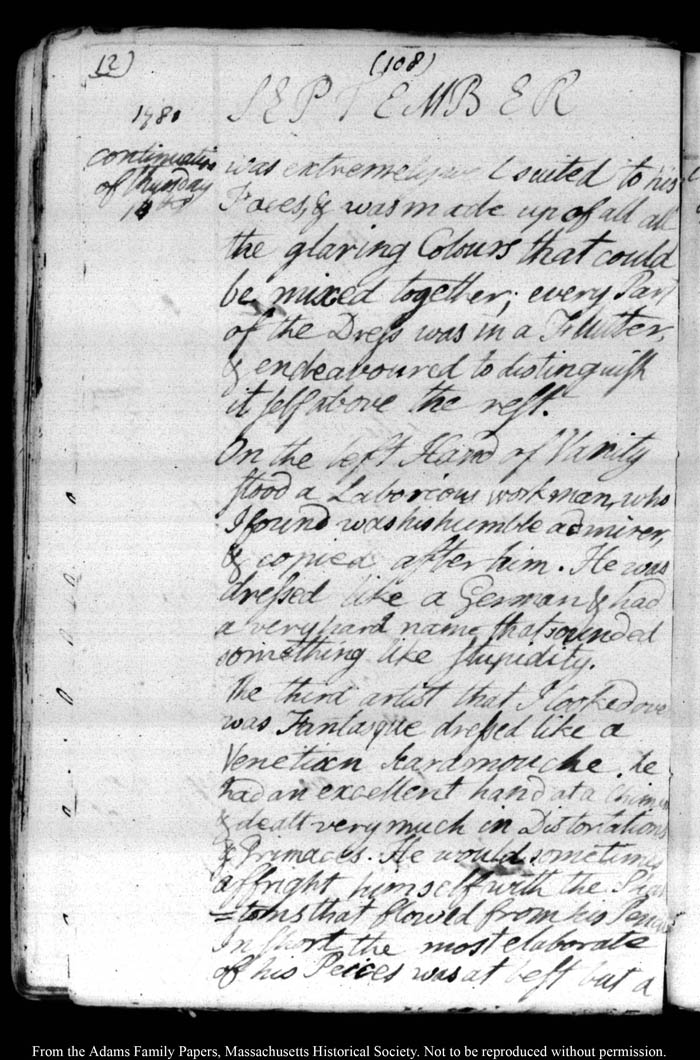 12)
(108)
1780
SEPTEMBER
continuation
of thursday
was extremely suited to his
Faces, & was made up of all all
the glaring Colours that could
be mixed together; every Part
of the Dress was in a Flutter,
& endeavoured to distinguish
it self above the rest.
On the left Hand of Vanity
stood a Laborious workman, who
I found was his humble admirer,
& copied after him. He was
dressed like a German & had
a very hard name, that sounded
something like stupidity.
The third artist that I looked over
was Fantasque dressed like a
Venetian Scaramouche, he
had an excellent hand at a Chimera
& dealt very much in Distortations
& Grimaces. He would sometimes
affright himself with the Phan
=toms that flowed from his Pencil
In short the most elaborate
of his Peices was at best but a
From the Adams Family Papers, Massachusetts Historical Society. Not to be reproduced without permission.